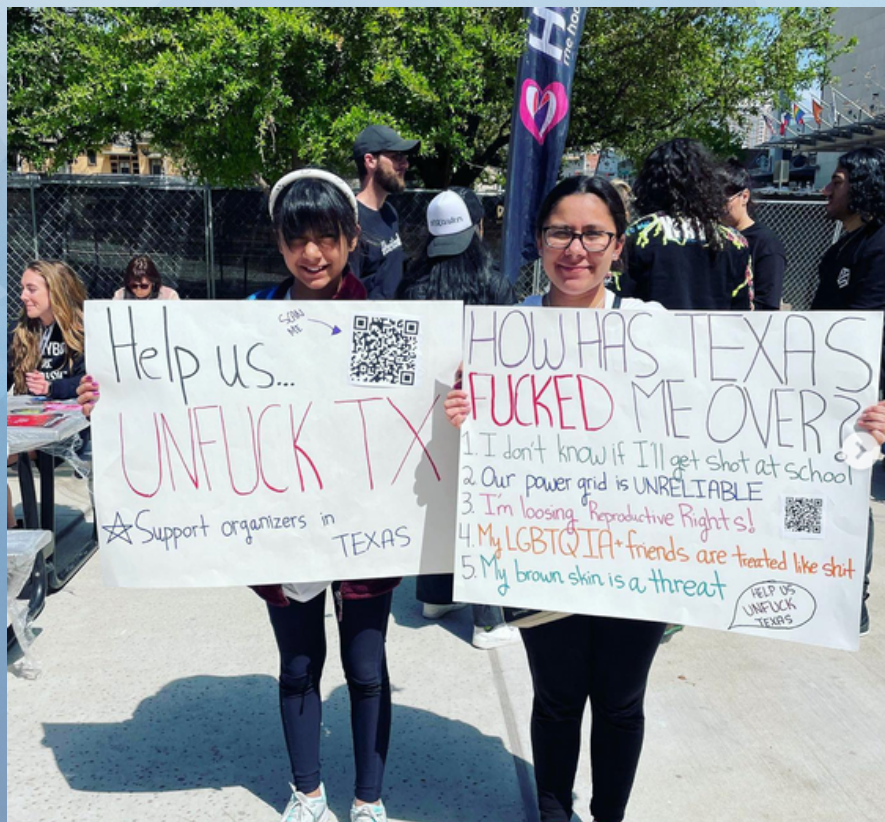 Help us...
SCAN
ME
UNFUCK TX
Support organizers in
TEXAS
HOW HAS TEXAS
FUCKED ME OVER?
1. I don't know if I'll get shot at school
2 Our power grid is UNRELIABLE
3. I'm loosing Reproductive Rights!
4. My LGBTQIA+ friends are treated like shit
5. My brown skin is a threat
HELP US
UNFUCK
TEXAS